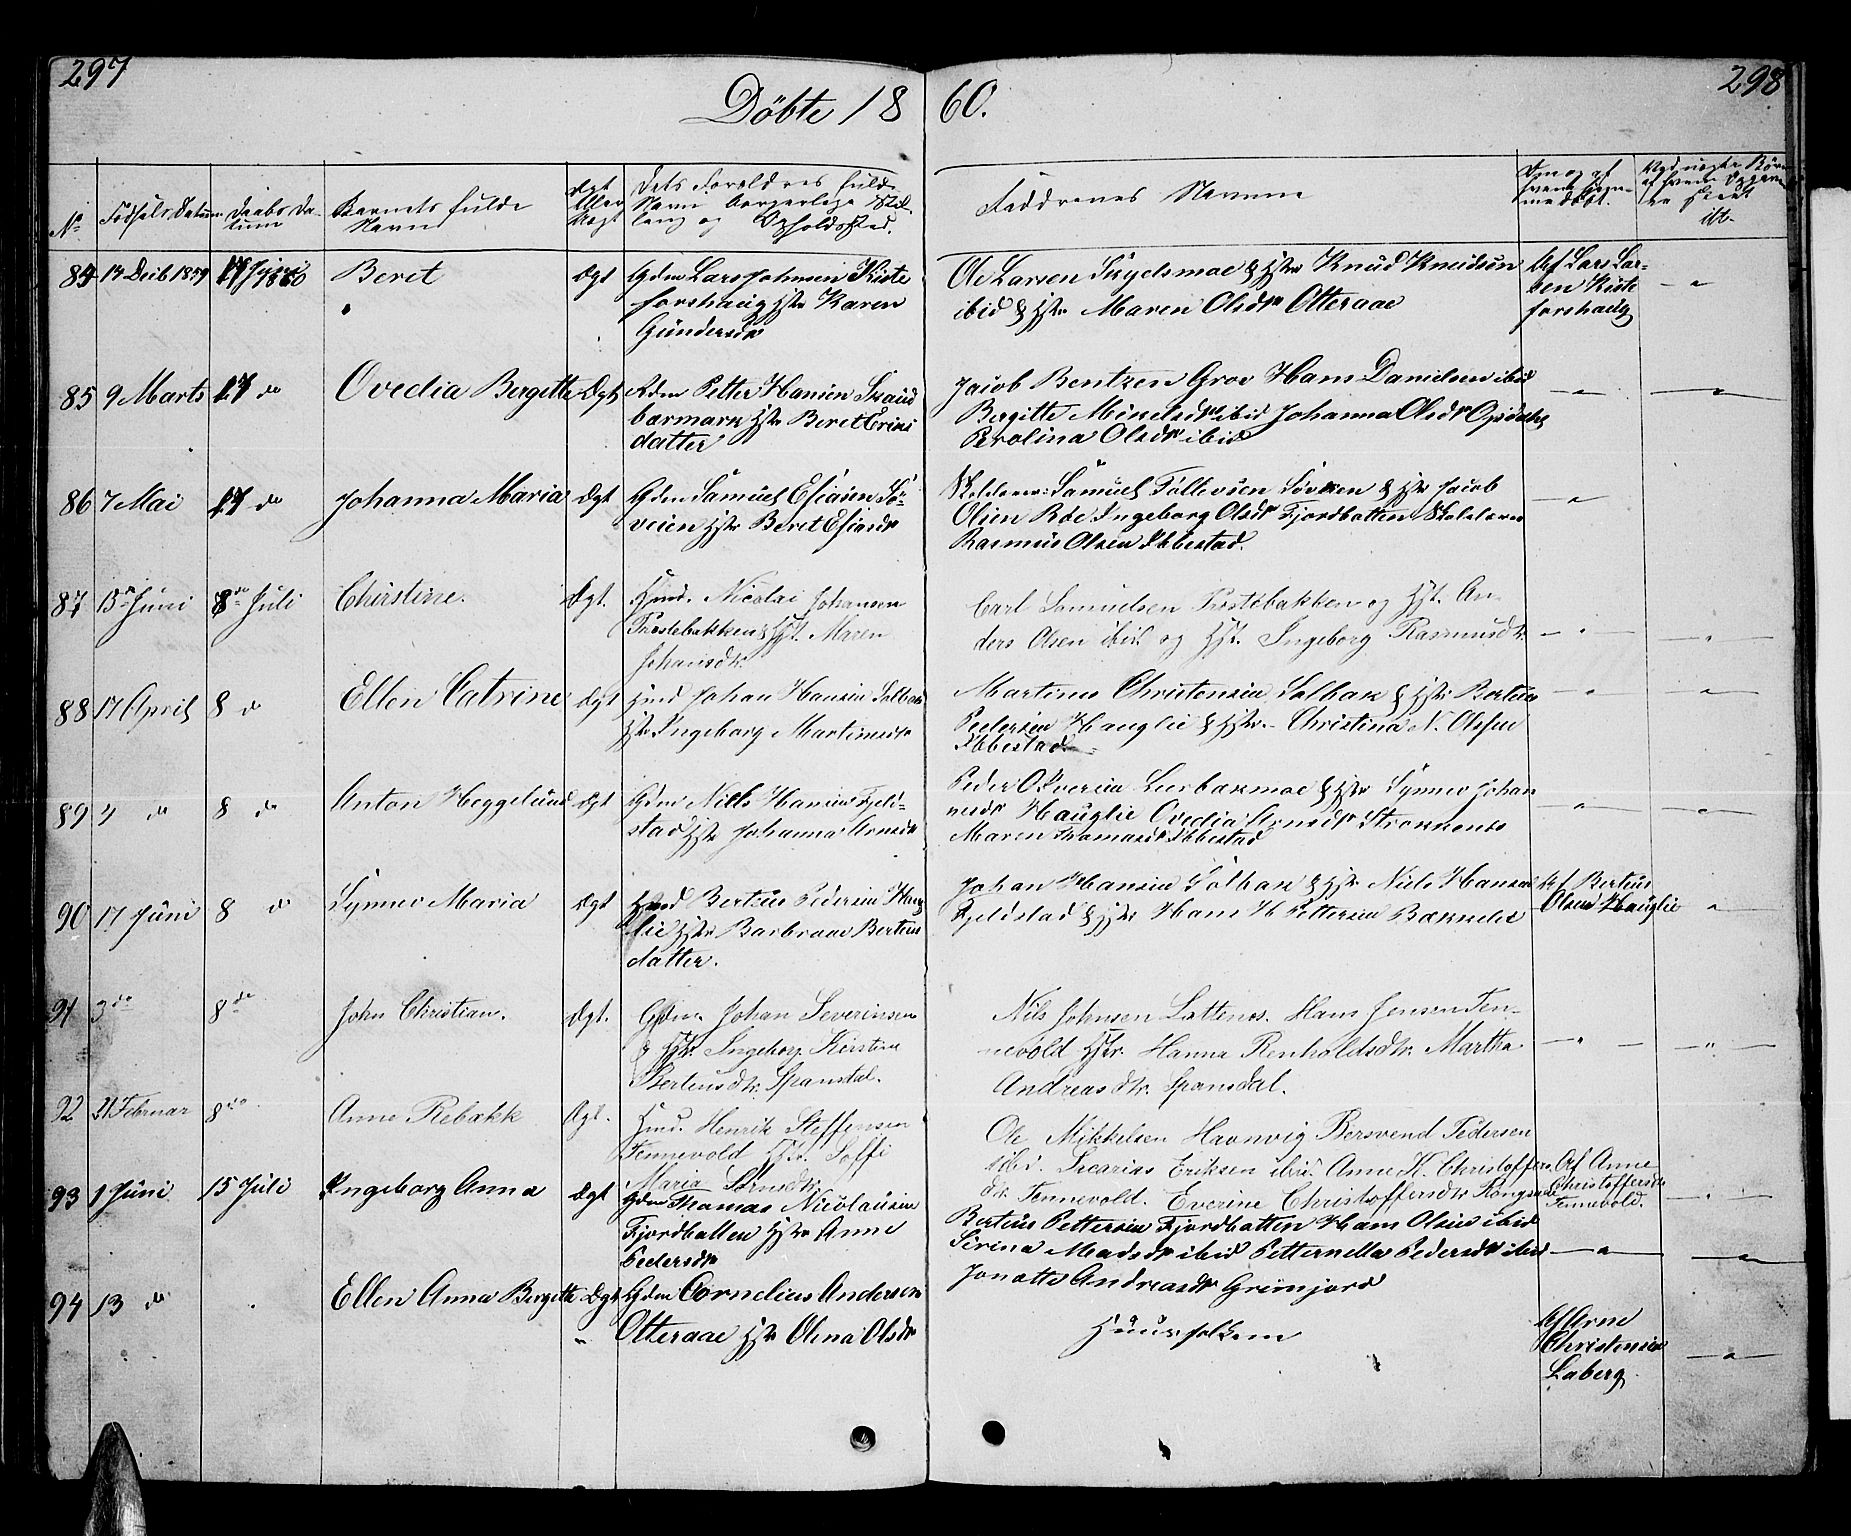 297
298
Döbte 18 60.
No
Födsels Datum
Daabs Datum
Barnets fulde Navn
Ægt eller Uægt
Dets Forældres fulde Navn borgerlige Stilling og Opholdssted.
Faddrenes Navne
84 Decb 1859 Beret Ægt Gdm Lars Johnsen Kiste
forshaug Hstr Karen
Gundersdr
Ole Larsen Hstr Knud Knudsen
ibid & Hstr Maren Olsdr Otteraae
Af Lars Lar-
sen Kiste
forshaug
85 9 Marts 17 do Ovedia Bergette Ægt Petter Hansen
Hstr Beret Erics
datter
Jacob Bentzen Grov Hans Danielsen ibid
Bergitte ibid Johanna Olsdr
Perolina Olsdr ibid
86 7 Mai 17 do Johanna Maria Ægt Gdm Samuel Esiasen Sö-
veien Hstr Beret Esiasdr
Samuel Tollevsen Söveien & Hstr Jacob
Olsen Röe Ingeborg Olsdr Fjordbotten
Rasmus Olsen Ibbestad.
87 Juni 8de Juli Christine. Ægt. Hmd. Nicolai Johansen
Prestebakken & Hst. Maren
Johansdr.
Carl Samuelsen Prestebakken og Hst. An-
ders Olsen ibid og Hst. Ingeborg Rasmusdr.
88 17 April 8 d Ellen Catrine Ægt Hmd Johan Hansen Solbak
Hstr Ingeborg Martinusdr
Martinus Christensen Solbak & Hstr Berteus
Pedersen Hauglie & Hstr Christina N. Olsen
Ibbestad
89 4 do 8 do Anton Heggelund Ægt Gdm Niels Hansen Fjeld-
stad Hstr Johanna Arnsdr
Peder & Hstr Synnev Johan
nesdr Hauglie Ovedia Arnsdr Straxenes
Maren Thomasdr Ibbestad
90 17 Juni 8 do Synnev Maria Ægt Hmd Berteus Pedersen Haug
lie Hstr Barbraae Berteus
datter.
Johan Hansen Solbak & Hstr Niels Hansen
Fjeldstad & Hstr Hans H Pettersen
Af Berteus
Olsen Hauglie
91 3 do 8 do John Christian. Ægt. Gdm. Johan Severinsen
& Hstr. Ingeborg Kirstine
Berteusdtr. Spansdal.
Nils Johnsen Lottenes. Hans Jensen Ten-
nevold Hstr. Hanna Renholdsdtr. Martha
Andreasdtr. Spansdal.
92 21 Februar 8 do Anne Rebækk Ægt. Hmd. Henrik Steffensen
Tennevold Hstr. Soffi
Maria
Ole Mikkelsen Havnvig Bersvend Pedersen
ibid. Sacarias Eriksen ibid. Anne K. Christoffers
dr. Tennevold. Everine Christoffersdtr
Af Anne
Christoffersdr
Tennevold.
93 1 Juni 15 Juli Ingeborg Anna Ægt Gdm Thomas Nicolaisen
Fjordbotten Hstr Anne
Pedersdr
Berteus Pettersen Fjordbotten Hans Olsen ibid
Sirina Madsdr ibid Petternella Pedersdr ibid
Jonette Andreasdr Gronfjord
94 13 do Ellen Anna Bergette Ægt Gdm Cornelius Andersen
Otteraae Hstr Olena Olsdr
Huusfolkene
Af Arne
Christensen
Laberg